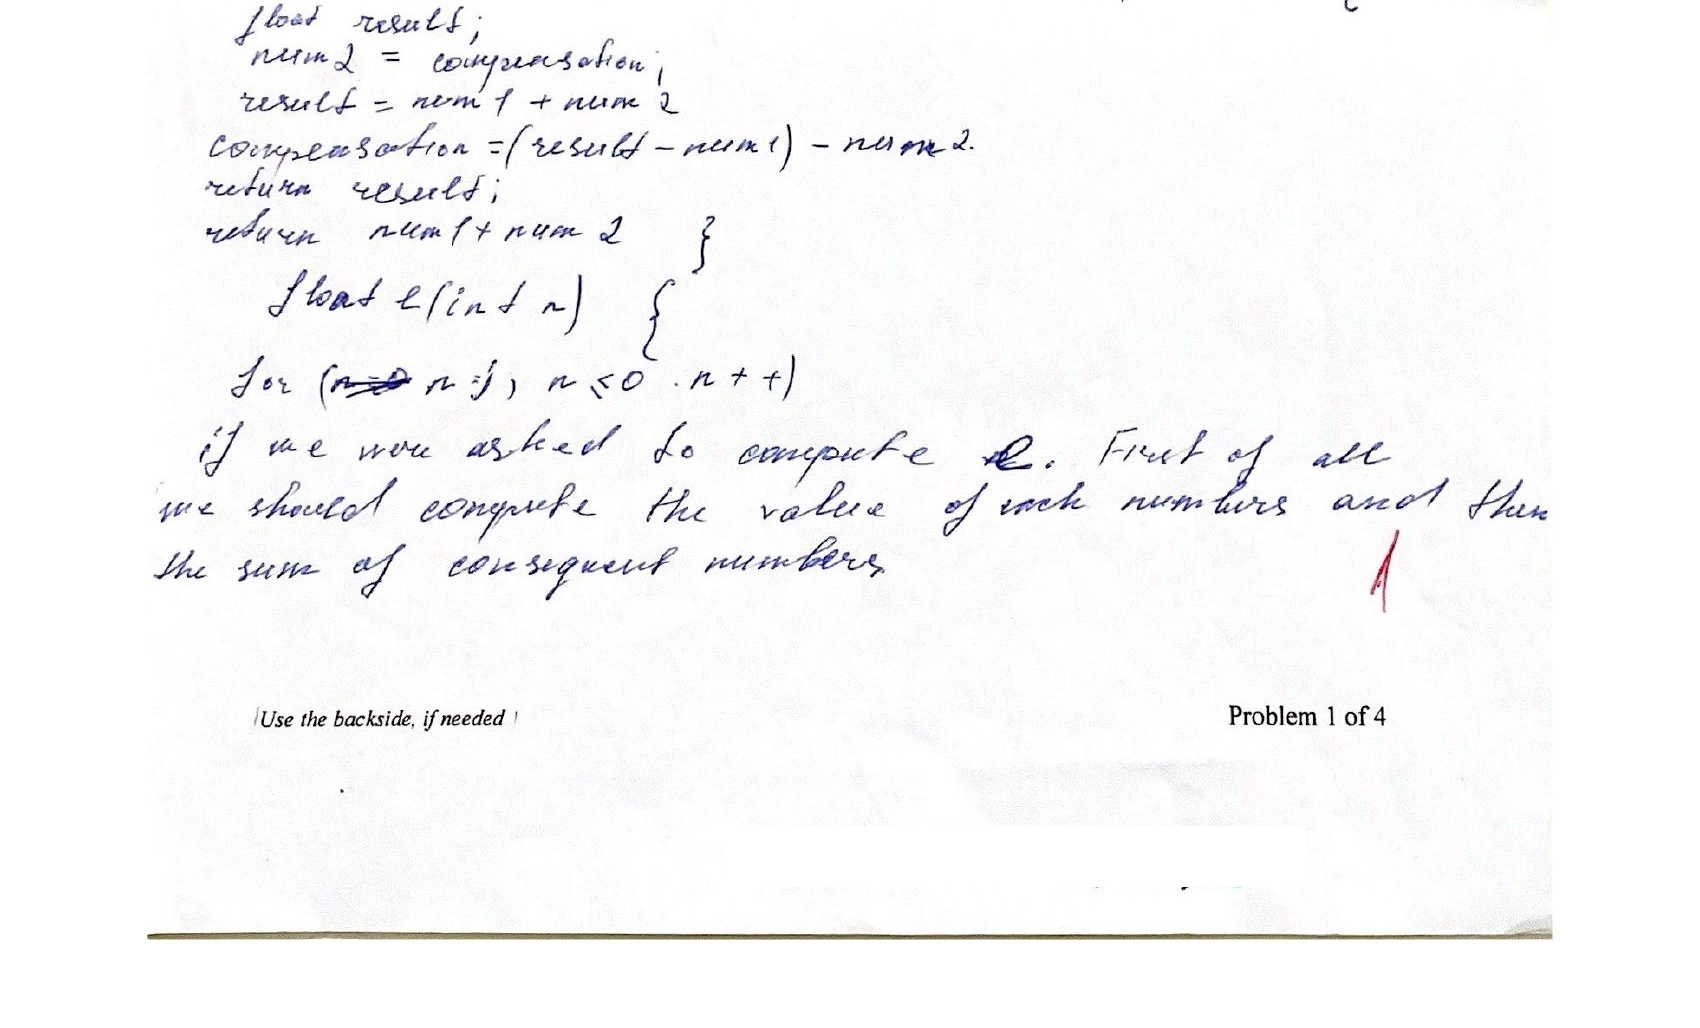 float result;
num2 = compensation;
result = num1 + num2
compensation = (result - num1) - num2.
return result;
return num1 + num2 }
float e(int n) {
for (n=1, n≤0 . n++)
if we were asked to compute e. First of all
we should compute the value of each numbers and then
the sum of consequent numbers
1
Use the backside, if needed
Problem 1 of 4